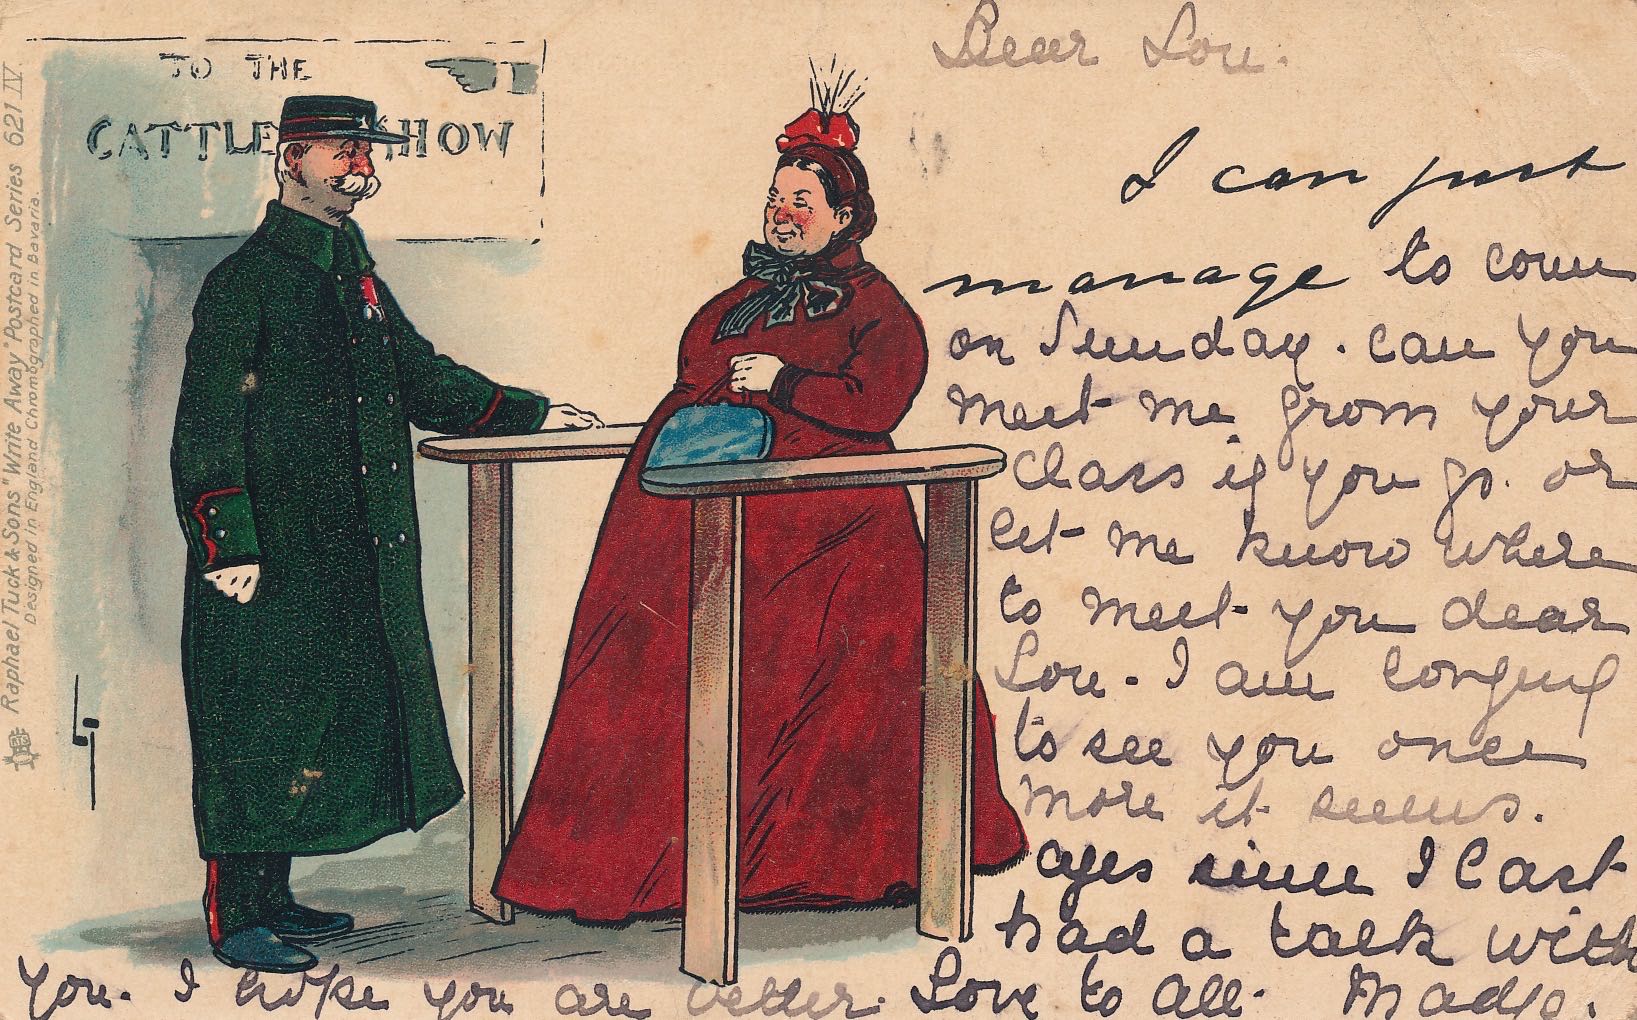 TO THE
CATTLE SHOW
Raphael Tuck & Sons "Write Away" Postcard Series 621 IV.
Designed in England Chromographed in Bavaria.
Dear Lou.
I can just
manage to come
on Sunday. can you
meet me from your
class if you go. or
let me know where
to meet you dear
Lou. I am longing
to see you once
more it seems.
ages since I last
had a talk with
you. I hope you are better. Love to all. Madge.